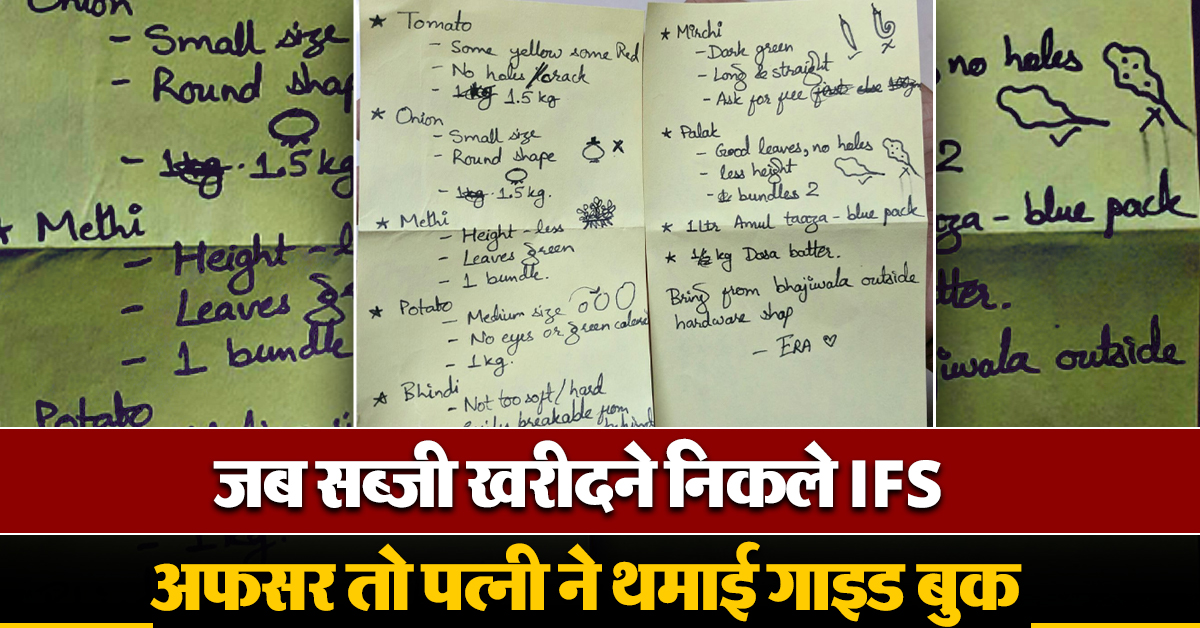 Onion
- Small size
- Round shap
- 1.5 kg
Methi
- Height - l
- Leaves
- 1 bundle
Potato
- 1 kg.
★ Tomato
- Some yellow some Red
- No holes/crack
- 1kg 1.5 kg
★ Onion
- Small size
- Round shape
- 1kg. 1.5 kg.
★ Methi
- Height - less
- Leaves green
- 1 bundle.
★ Potato
- Medium size
- No eyes or green
- 1 kg.
★ Bhindi
- Not too soft/hard
breakable from
★ Mirchi
- Dark green
- Long & straight
- Ask for free
★ Palak
- Good leaves, no holes
- less height
- bundles 2
★ 1 ltr Amul taaza - blue pack
★ kg Dosa batter.
Bring from bhajiwala outside
hardware shop
- ERA ♡
no holes
2
za - blue pack
tter.
iwala outside
जब सब्जी खरीदने निकले IFS
अफसर तो पत्नी ने थमाई गाइड बुक